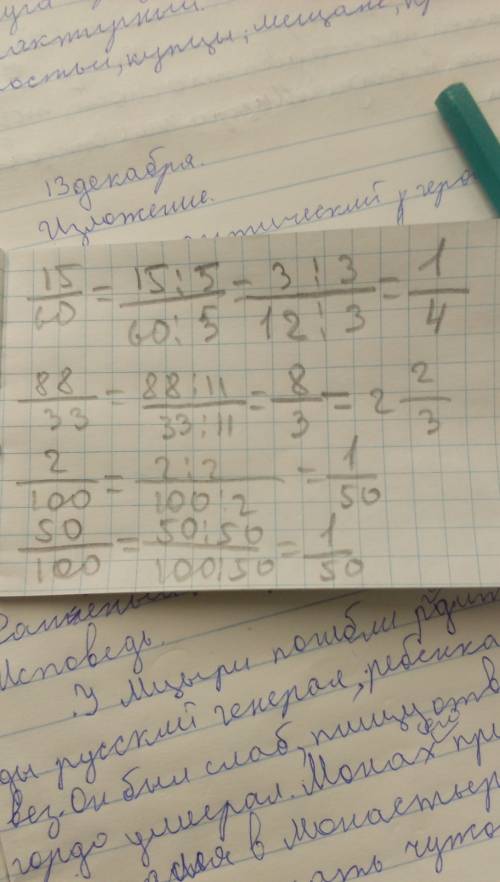 купцы, мещане,
13 декабря.
Изложение.
15/60 = 15:5/60:5 = 3:3/12:3 = 1/4
88/33 = 88:11/33:11 = 8/3 = 2 2/3
2/100 = 2:2/100:2 = 1/50
50/100 = 50:50/100:50 = 1/50
Исповедь.
У Мцыри погибли
русский генерал, ребёнка
вёз. Он был слаб, пищу
гордо умирал. Монах его
в монастыре